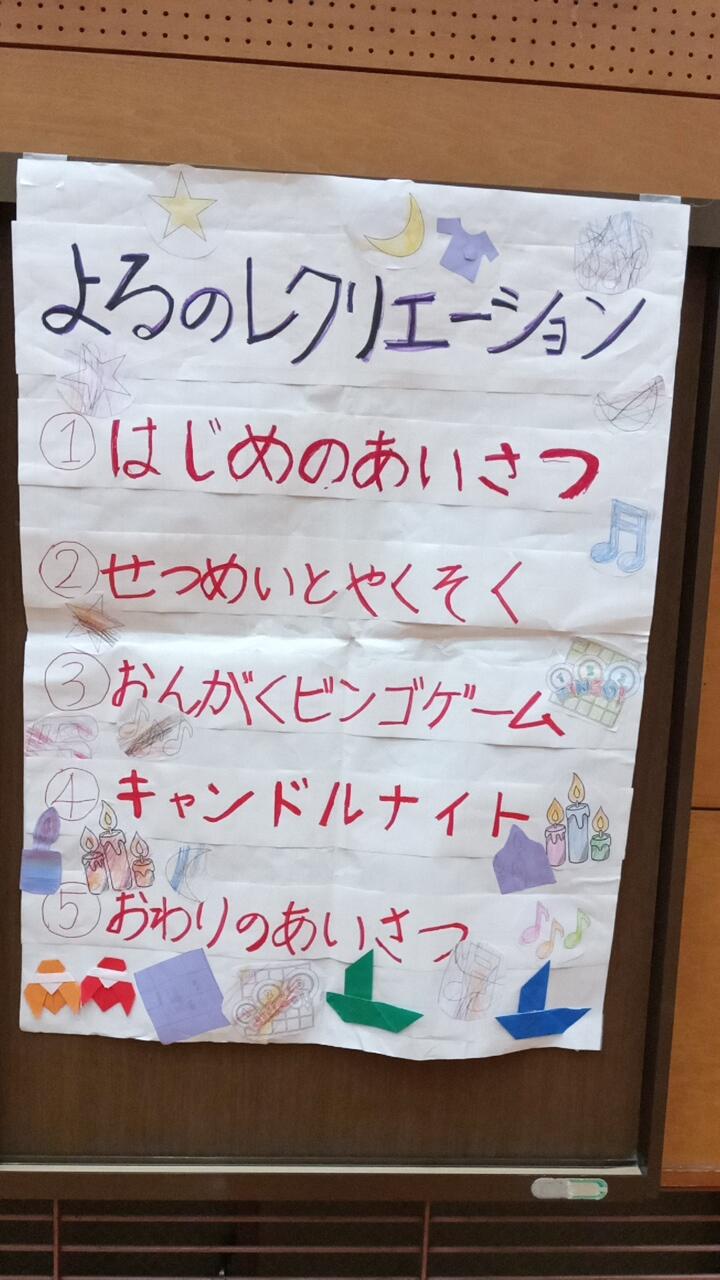 よるのレクリエーション
①はじめのあいさつ
②せつめいとやくそく
③おんがくビンゴゲーム
④キャンドルナイト
⑤おわりのあいさつ